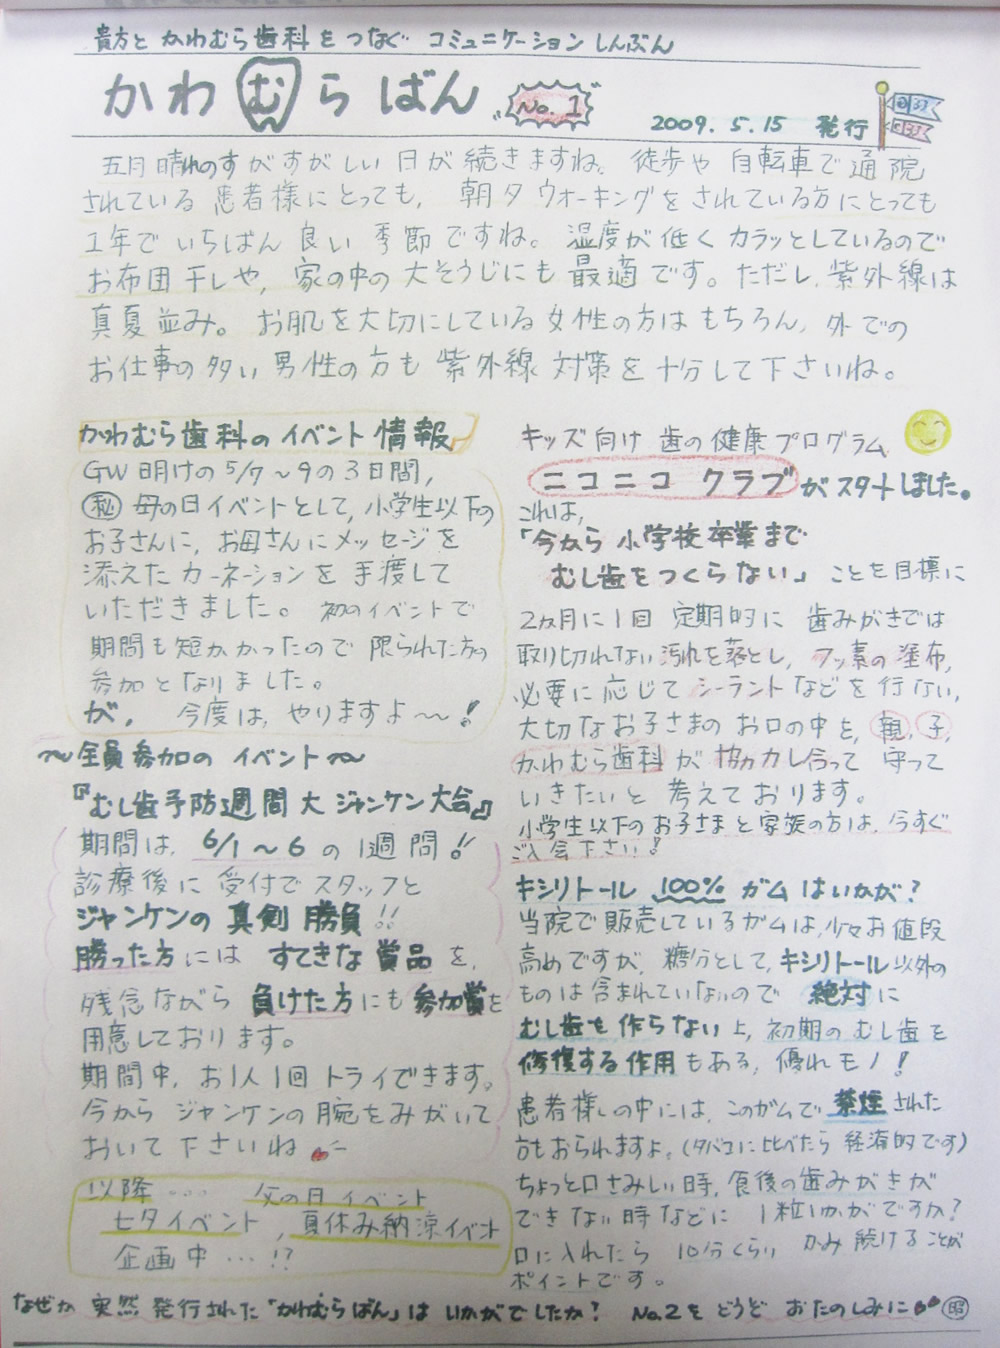 貴方と かわむら歯科をつなぐ コミュニケーションしんぶん
かわむらばん No.1
2009.5.15 発行
五月晴れのすがすがしい日が続きますね。徒歩や自転車で通院
されている患者様にとっても、朝夕ウォーキングをされている方にとっても
1年でいちばん良い季節ですね。湿度が低くカラッとしているので
お布団干しや、家の中の大そうじにも最適です。ただし、紫外線は
真夏並み。お肌を大切にしている女性の方はもちろん、外での
お仕事の多い男性の方も紫外線対策を十分して下さいね。
かわむら歯科のイベント情報
GW明けの5/7～9の3日間、
㊙母の日イベントとして、小学生以下の
お子さんに、お母さんにメッセージを
添えたカーネーションを手渡して
いただきました。初のイベントで
期間も短かかったので限られた方の
参加となりました。
が、今度は、やりますよ～!
～全員参加のイベント～
『むし歯予防週間大ジャンケン大会』
期間は、6/1～6の1週間!!
診療後に受付でスタッフと
ジャンケンの真剣勝負!!
勝った方にはすてきな賞品を、
残念ながら負けた方にも参加賞を
用意しております。
期間中、お1人1回トライできます。
今からジャンケンの腕をみがいて
おいて下さいね
以降… 父の日イベント
七夕イベント、夏休み納涼イベント
企画中…!?
キッズ向け歯の健康プログラム
ニコニコクラブがスタートしました。
これは、
「今から小学校卒業まで
むし歯をつくらない」ことを目標に
2ヵ月に1回定期的に歯みがきでは
取り切れない汚れを落とし、フッ素の塗布、
必要に応じてシーラントなどを行ない、
大切なお子さまのお口の中を、親、子、
かわむら歯科が協力し合って守って
いきたいと考えております。
小学生以下のお子さまと家族の方は、今すぐ
ご入会下さい!
キシリトール100%ガムはいかが?
当院で販売しているガムは、少々お値段
高めですが、糖分として、キシリトール以外の
ものは含まれていないので絶対に
むし歯を作らない上、初期のむし歯を
修復する作用もある、優れモノ!
患者様の中には、このガムで禁煙された
方もおられますよ。(タバコに比べたら経済的です)
ちょっと口さみしい時、食後の歯みがきが
できない時などに1粒いかがですか?
口に入れたら10分くらいかみ続けることが
ポイントです。
なぜか突然発行された「かわむらばん」はいかがでしたか? No.2をどうぞおたのしみに